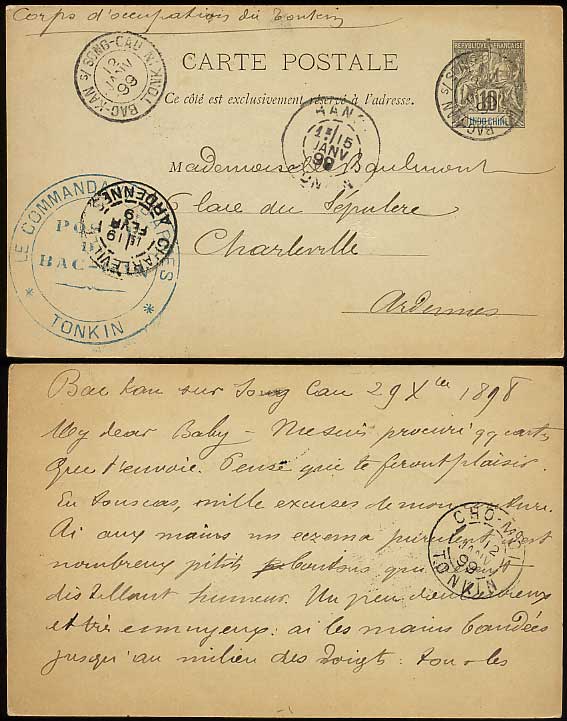 Corps d'occupation du Tonkin
CARTE POSTALE
RÉPUBLIQUE FRANÇAISE
10
INDO-CHINE
BAC-KAN S/ SONG-CAU (TONKIN)
12
JANV
99
BAC-KAN S/ SONG
Ce côté est exclusivement réservé à l'adresse.
HANOI
15
JANV
99
TONKIN
Mademoiselle Baulmont
6 place du Sépulcre
Charleville
Ardennes
LE COMMANDANT D'ARMES
BAC-KAN
TONKIN
CHARLEVILLE
ARDENNES
19
FEVR
Bac Kan sur Song Cau 29 Xbre 1898
My dear Baby – Me suis procuré qq cartes
Que t'envoie. Pense que te feront plaisir.
En tous cas, mille excuses de mon écriture.
Ai aux mains un eczema purulent, c'est
nombreux petits boutons qui
distillant humeur. Un peu douloureux
et très ennuyeux: ai les mains bandées
jusqu'au milieu des doigts: tous les
CHO-MOI
12
JANV
99
TONKIN